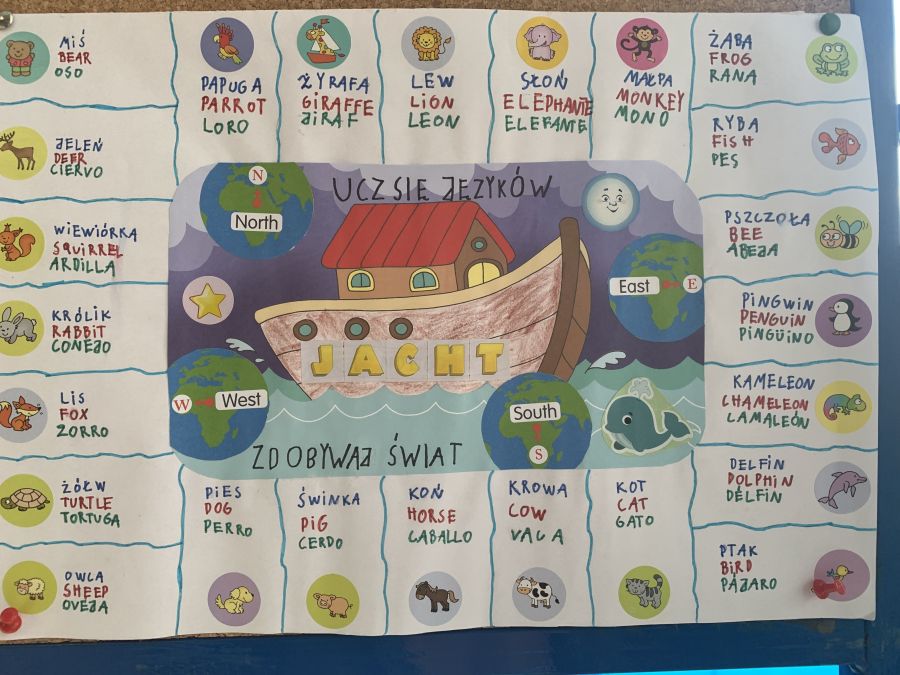 MIŚ
BEAR
OSO
PAPUGA
PARROT
LORO
ŻYRAFA
GIRAFFE
JIRAF
LEW
LION
LEON
SŁOŃ
ELEPHANTE
ELEFANTE
MAŁPA
MONKEY
MONO
ŻABA
FROG
RANA
JELEŃ
DEER
CIERVO
RYBA
FISH
PEŞ
WIEWIÓRKA
SQUIRREL
ARDILLA
PSZCZOŁA
BEE
ABEJA
KRÓLIK
RABBIT
CONEJO
PINGWIN
PENGUIN
PINGÜINO
LIS
FOX
ZORRO
KAMELEON
CHAMELEON
CAMALEÓN
ŻÓŁW
TURTLE
TORTUGA
DELFIN
DOLPHIN
DELFIN
OWCA
SHEEP
OVEJA
PTAK
BIRD
PÁJARO
UCZ SIĘ JĘZYKÓW
N
North
East E
JACHT
W West
South
S
ZDOBYWAJ ŚWIAT
PIES
DOG
PERRO
ŚWINKA
PIG
CERDO
KOŃ
HORSE
CABALLO
KROWA
COW
VACA
KOT
CAT
GATO